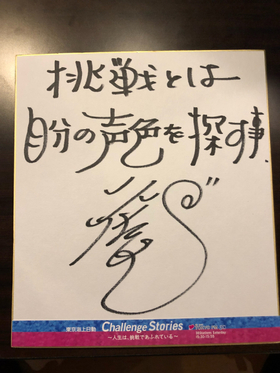 挑戦とは
自分の声色を探す事
東京海上日動 Challenge Stories
～人生は、挑戦であふれている～
TOKYO FM